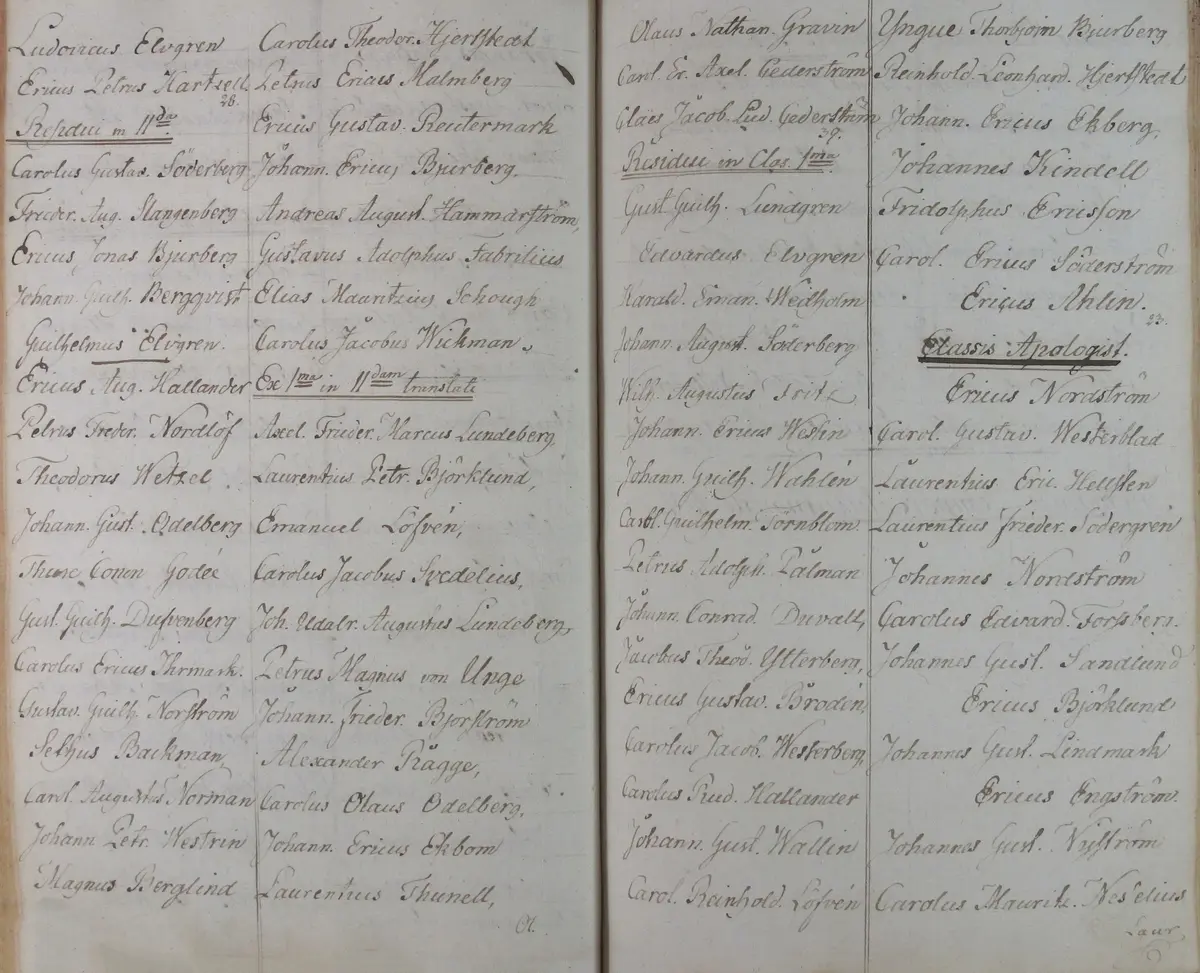 Ludovicus Elvgren
Ericus Petrus Hartzell
28.
Residui in IIda
Carolus Gustav. Söderberg
Frieder. Aug. Stangenberg
Ericus Jonas Bjurberg
Johann. Guilh. Bergqvist
Guilhelmus Elvgren.
Ericus Aug. Hallander
Petrus Freder. Nordlöf
Theodorus Wetzel
Johann. Gust. Odelberg
Thure Conon Godée
Gust. Guilh. Dufvenberg
Carolus Ericus Ihrmark.
Gustav. Guilh. Norström
Sethus Backman,
Carol. Augustus Norman
Johann Petr. Westrin
Magnus Berglind
Carolus Theodor. Hjerstedt
Petrus Ericus Malmberg
Ericus Gustav. Reutermark
Johann. Ericus Bjurberg.
Andreas August. Hammarström,
Gustavus Adolphus Fabrilius
Elias Mauritzius Schough
Carolus Jacobus Wickman,
Ex 1ma in IIdam translati
Axel. Frieder. Marcus Lundeberg,
Laurentius Petr. Björklund,
Emanuel Löfvén,
Carolus Jacobus Svedelius,
Joh. Udalr. Augustus Lundeberg,
Petrus Magnus von Unge
Johann. Frieder. Björström
Alexander Rågge,
Carolus Olaus Odelberg,
Johann. Ericus Ekbom
Laurentius Thunell,
Ol.
Olaus Nathan. Gravin
Carol. Er. Axel. Cederström
Claës Jacob. Lud. Cederström
39.
Residui in Clas. 1ma
Gust. Guilh. Lundgren
Edvardus Elvgren
Harald. Eman. Wedholm
Johann. August. Söderberg
Wilh. Augustus
Johann. Ericus Weslin
Johann. Guilh. Wahlén
Carol. Guilhelm. Törnblom
Petrus Adolph. Pålman
Johann. Conrad. Duvall,
Jacobus Theod. Ytterberg,
Ericus Gustav. Brodin,
Carolus Jacob. Westerberg,
Carolus Rud. Hallander
Johann. Gust. Wallin
Carol. Reinhold. Löfvén
Yngue Thorbjörn Bjurberg
Reinhold. Leonhard. Hjerstedt
Johann. Ericus Ekberg,
Johannes Kindell
Fridolphus Ericsson
Carol. Ericus Söderström
Ericus Ahlin.
23.
Classis Apologist.
Ericus Nordström
Carol. Gustav. Westerblad
Laurentius Eric. Hellsten
Laurentius Frieder. Södergrén
Johannes Nordström
Carolus Edvard. Forssberg.
Johannes Gust. Sandlund
Ericus Björklund
Johannes Gust. Lindmark
Ericus Engström.
Johannes Gust. Nyström
Carolus Mauritz. Neselius
Laur.